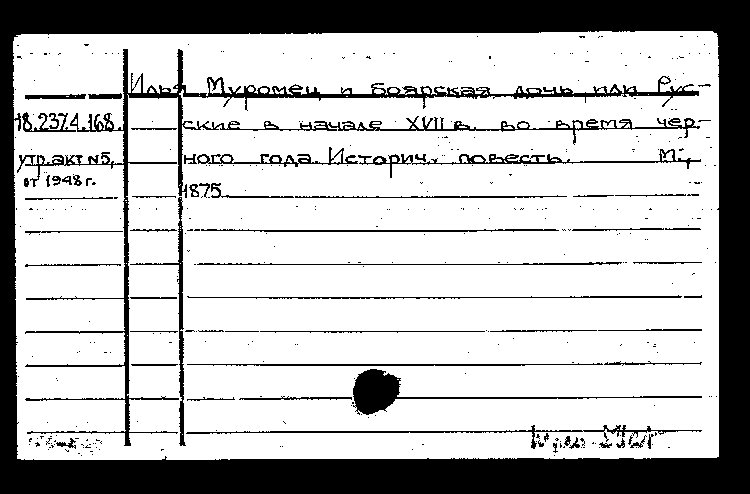 Илья Муромец и боярская дочь или Рус-
18.237.4.168. ские в начале XVII в. во время чер-
утр.акт №5, ного года. Историч. повесть. М.,
от 1948 г. 1875.